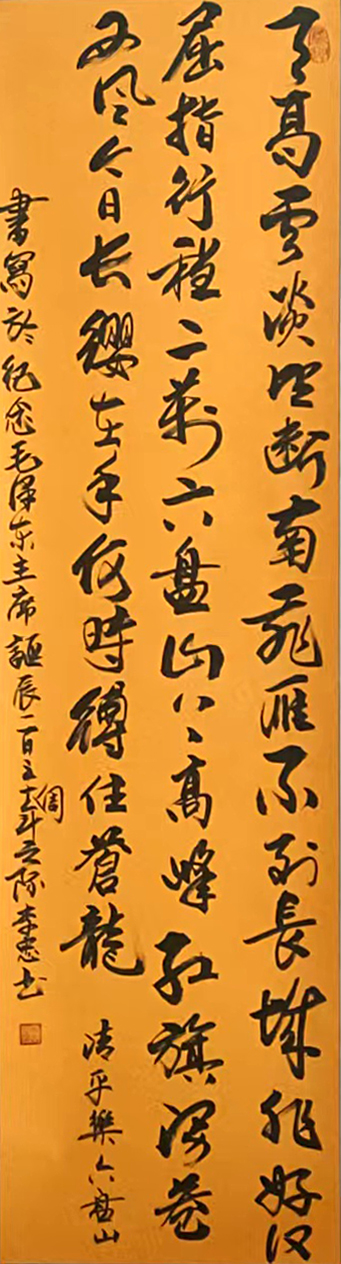 天高雲淡望断南飛雁不到長城非好汉
屈指行程二萬六盘山上高峰红旗漫卷
西风今日长缨在手何時縛住蒼龍
清平樂六盘山
書寫於纪念毛泽东主席誕辰一百二十五周年之际李忠书